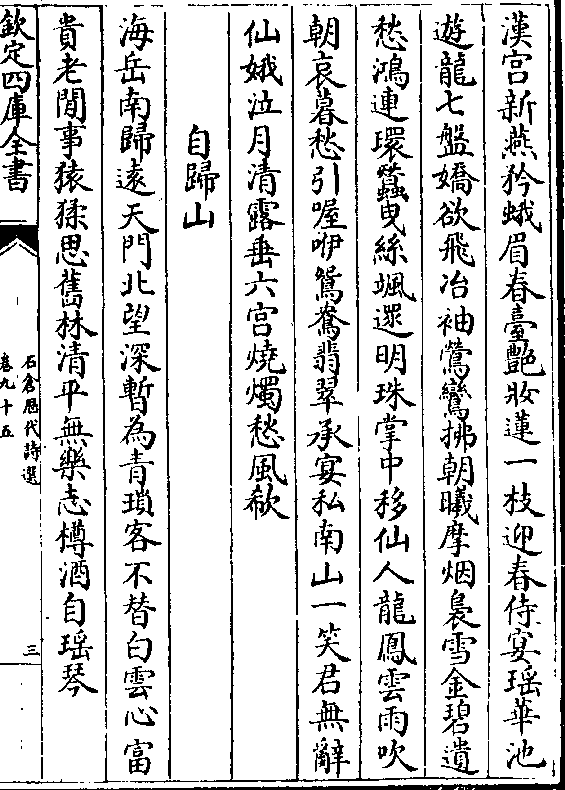 漢宫新燕矜蛾眉春臺艷妝蓮一枝迎春侍宴瑶華池
遊龍七盤嬌欲飛冶袖鶯鸞拂朝曦摩烟裊雪金碧遺
愁鴻連環蠶曳絲颯遝明珠掌中移仙人龍鳳雲雨吹
朝哀暮愁引喔咿鴛鴦翡翠承宴私南山一笑君無辭
仙娥泣月清露垂六宫燒燭愁風欷
自歸山
海岳南歸遠天門北望深暫為青瑣客不替白雲心富
貴老閒事猿猱思舊林清平無樂志樽酒自瑶琴
欽定四庫全書
石倉歷代詩選
卷九十五
三